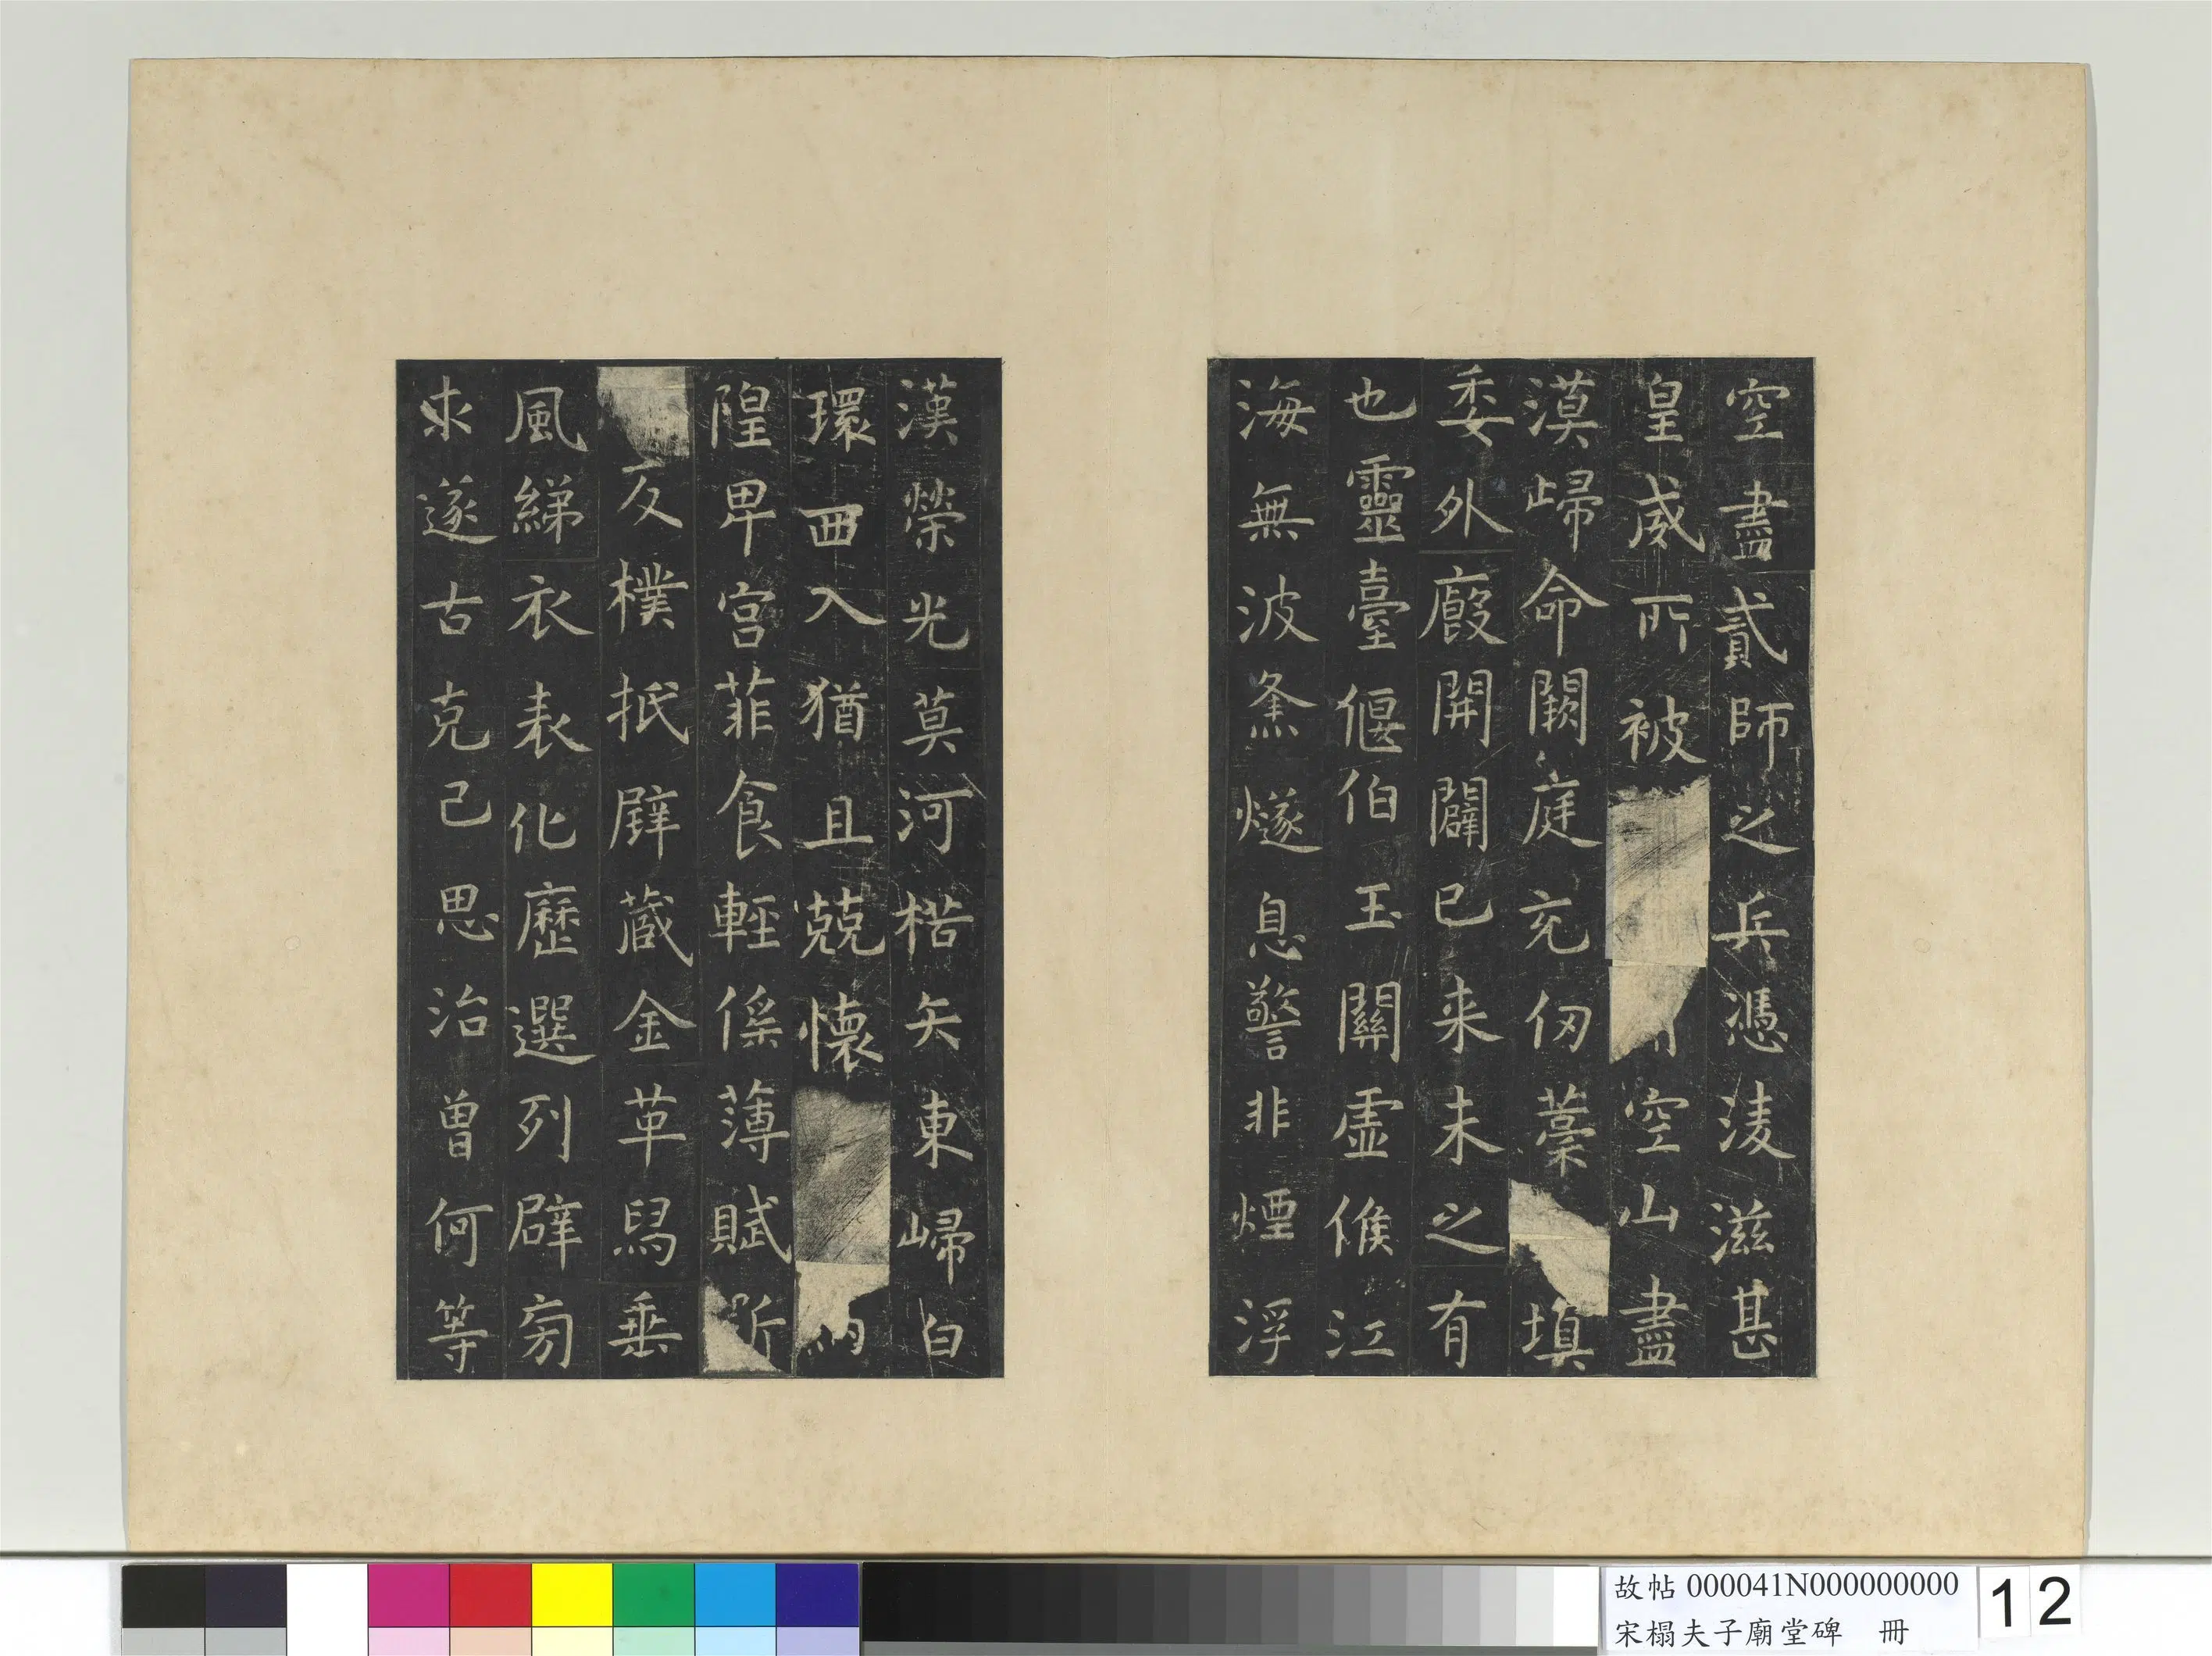 空盡貳師之兵憑淩滋甚
皇威所被空山盡
漠歸命闕庭充仞藁填
委外廄開闢已来未之有
也靈臺偃伯玉關虛候江
海無波烽燧息警非煙浮
漢榮光莫河楛矢東歸白
環西入猶且兢懷納
隍卑宮菲食輕徭薄賦斲
反樸抵璧藏金革舄垂
風綈衣表化歷選列辟旁
求遂古克己思治曾何等
故帖 000041N000000000
宋榻夫子廟堂碑 冊
12